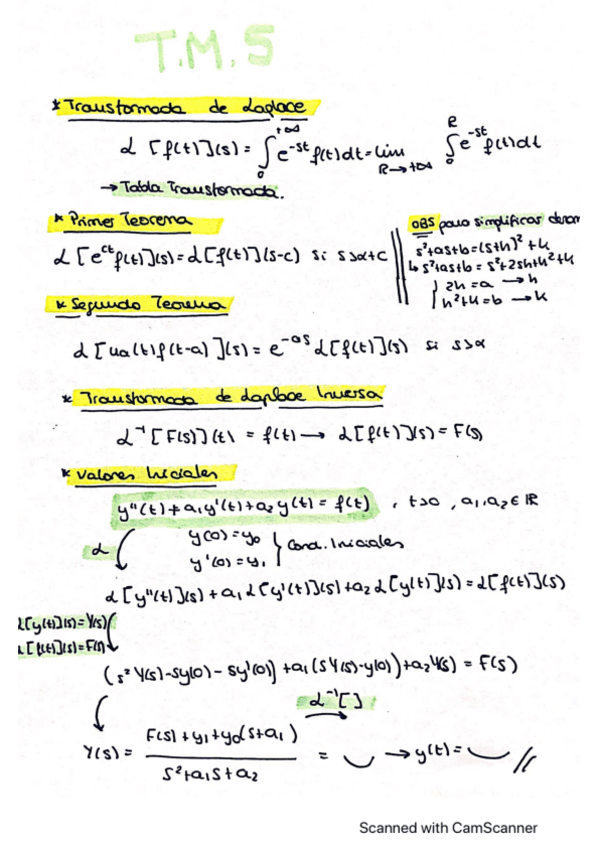 T.M.5
* Transformada de Laplace
L [f(t)](s) = ∫₀^{+∞} e^{-st} f(t)dt = lim_{R→+∞} ∫₀^R e^{-st} f(t)dt
→ Tabla Transformada.
* Primer Teorema
L [e^{ct} f(t)](s) = L[f(t)](s-c) si s>α+c
OBS para simplificar denom
s²+as+b=(s+h)²+k
↳ s²+as+b = s²+2sh+h²+k
{ 2h = a → h
{ h²+k = b → k
* Segundo Teorema
L [ua(t)f(t-a)](s) = e^{-as} L[f(t)](s) si s>α
* Transformada de Laplace Inversa
L⁻¹ [F(s)](t) = f(t) → L[f(t)](s) = F(s)
* Valores Iniciales
y''(t)+a₁y'(t)+a₂y(t) = f(t) , t>0 , a₁,a₂ ∈ ℝ
L
y(0) = y₀
y'(0) = y₁
} Cond. Iniciales
L [y''(t)](s) + a₁ L[y'(t)](s) + a₂ L[y(t)](s) = L[f(t)](s)
L[y(t)](s) = Y(s)
L[f(t)](s) = F(s)
(s² Y(s) - Sy(0) - Sy'(0)) + a₁(SY(s) - y(0)) + a₂Y(s) = F(s)
L⁻¹[ ]
Y(s) = (F(s) + y₁ + y₀(s+a₁)) / (s²+a₁s+a₂) = ‿ → y(t) = ‿ //
Scanned with CamScanner